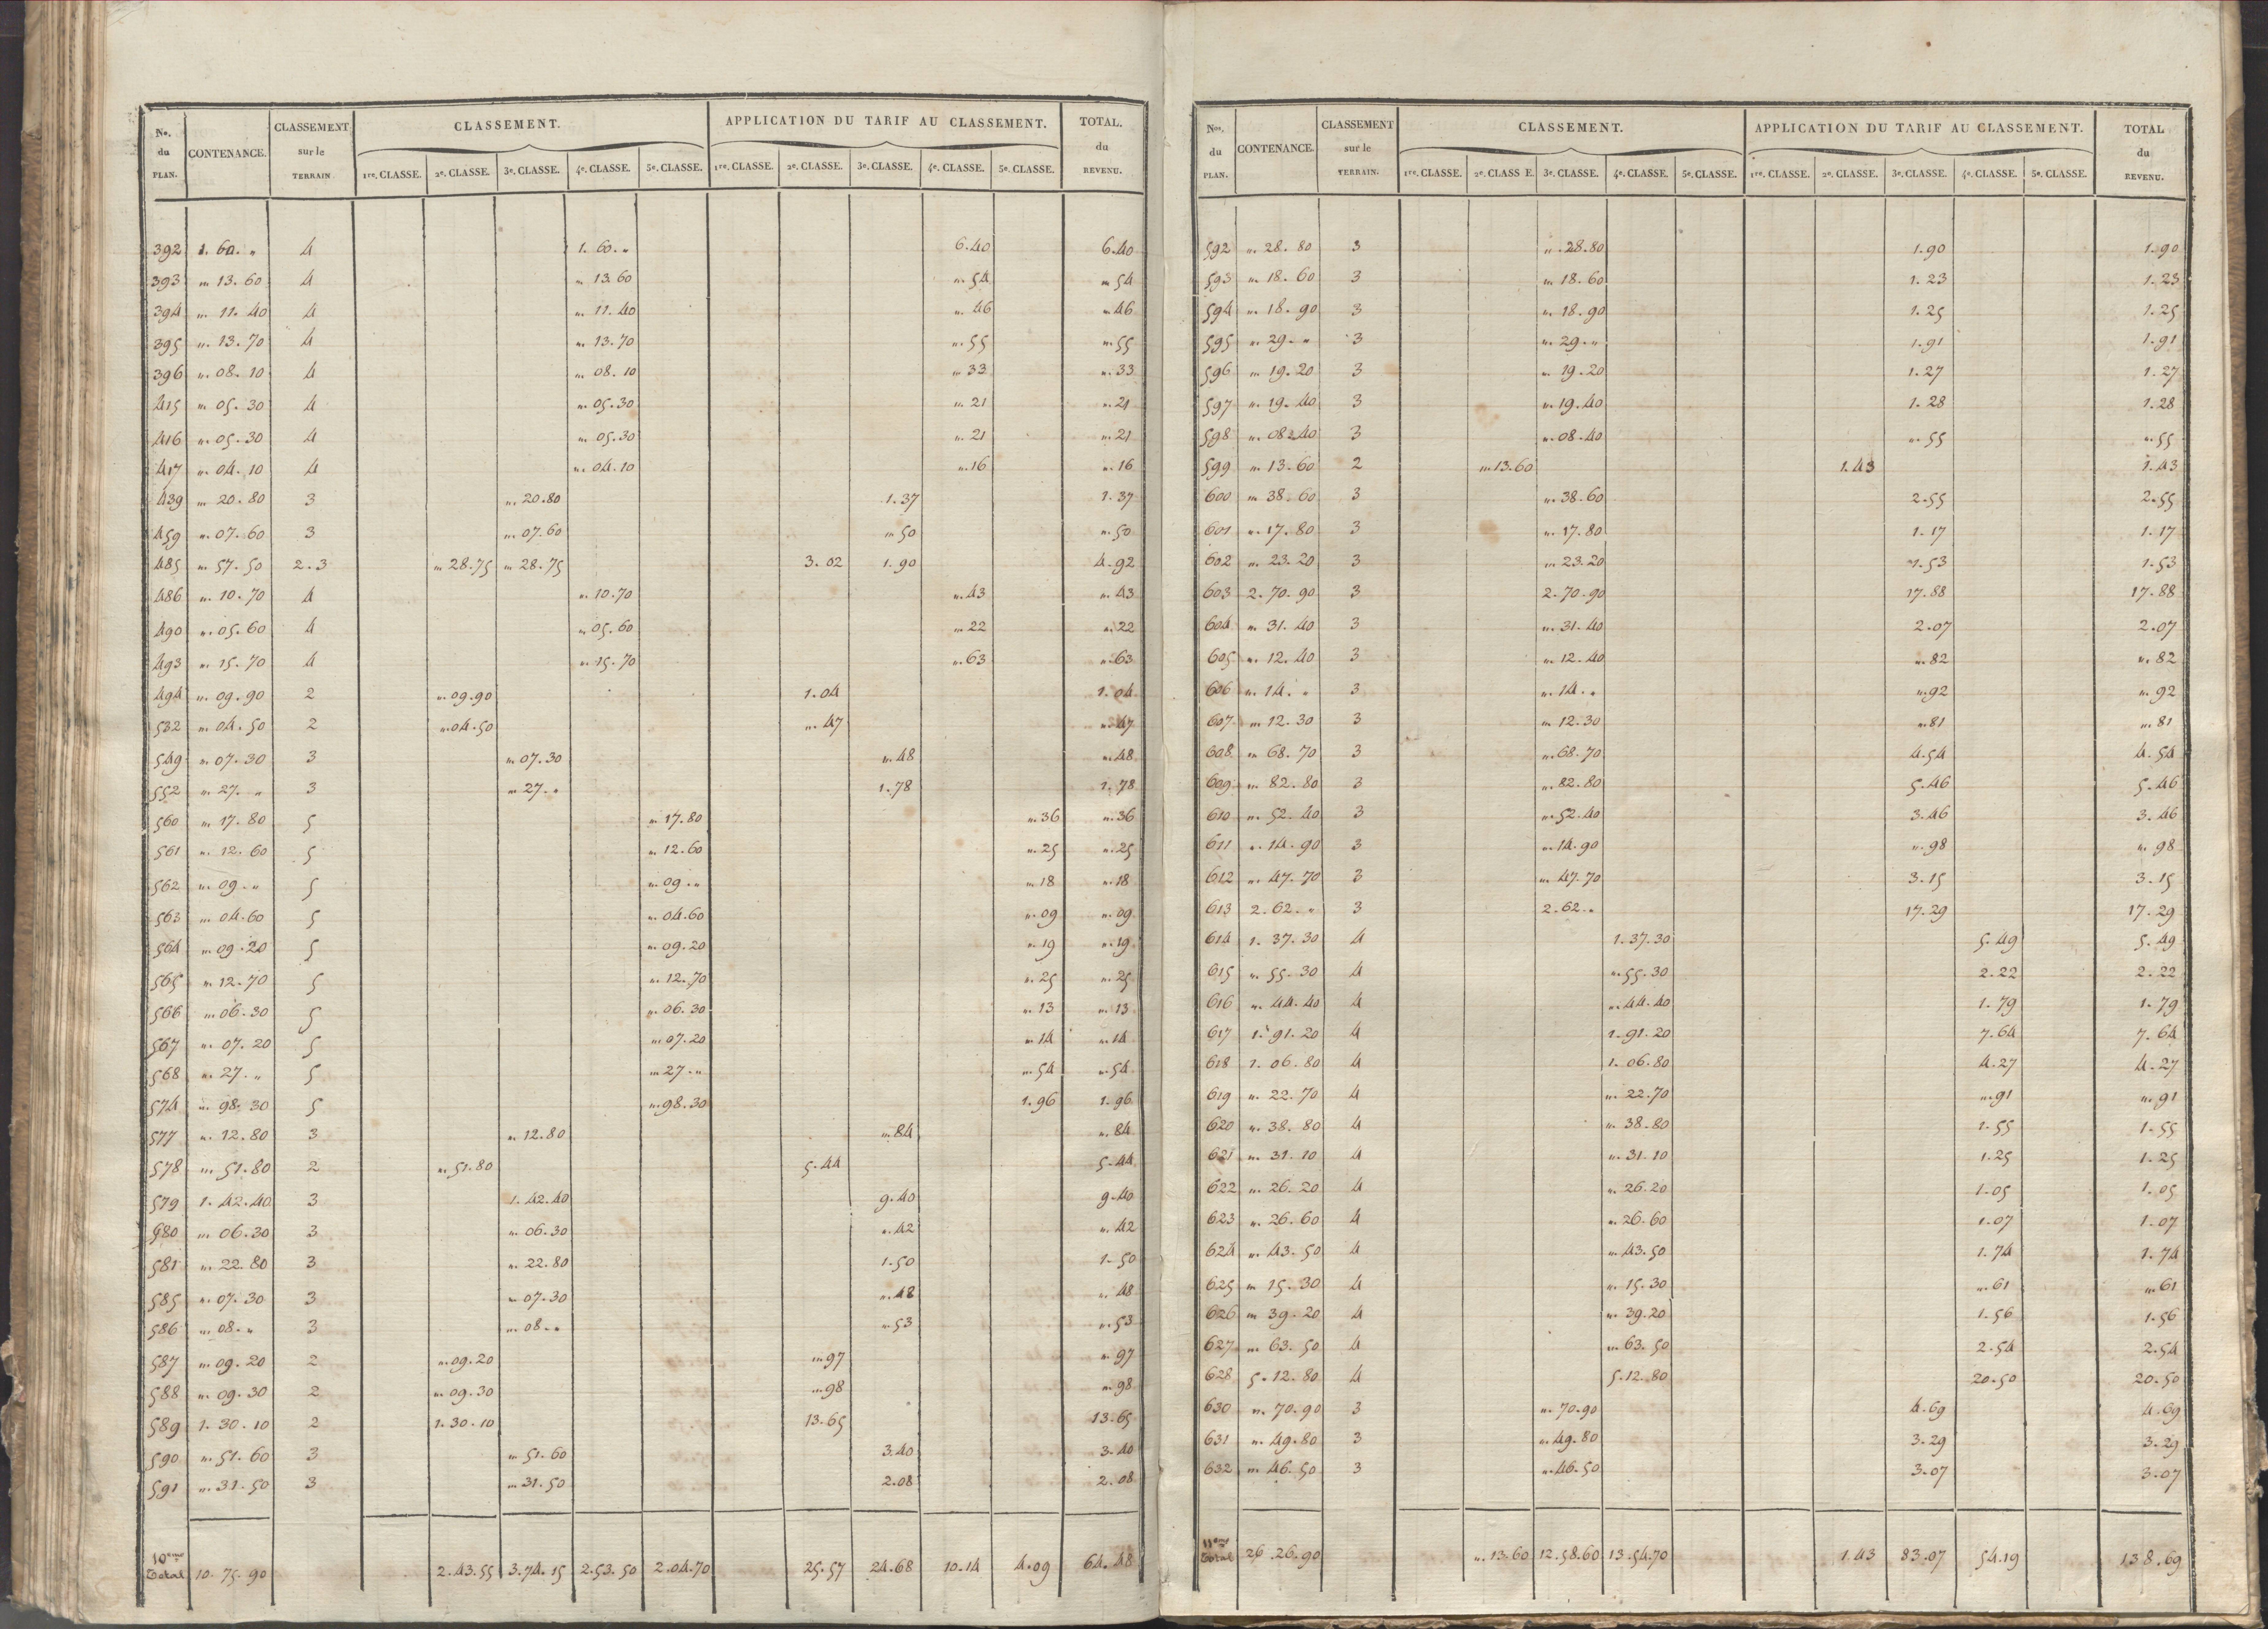 Nos. du PLAN. | CONTENANCE. | CLASSEMENT sur le TERRAIN | CLASSEMENT. | APPLICATION DU TARIF AU CLASSEMENT. | TOTAL. du REVENU.
1re. CLASSE. | 2e. CLASSE. | 3e. CLASSE. | 4e. CLASSE. | 5e. CLASSE. | 1re. CLASSE. | 2e. CLASSE. | 3e. CLASSE. | 4e. CLASSE. | 5e. CLASSE.
392 1. 60. „ 4 1. 60. „ 6.40 6.40
393 „. 13. 60 4 „. 13. 60 „. 54 „. 54
394 „. 11. 40 4 „. 11. 40 „. 46 „. 46
395 „. 13. 70 4 „. 13. 70 „. 55 „. 55
396 „. 08. 10 4 „. 08. 10 „. 33 „. 33
415 „. 05. 30 4 „. 05. 30 „. 21 „. 21
416 „. 05. 30 4 „. 05. 30 „. 21 „. 21
417 „. 04. 10 4 „. 04. 10 „. 16 „. 16
439 „. 20. 80 3 „. 20. 80 1. 37 1. 37
459 „. 07. 60 3 „. 07. 60 „. 50 „. 50
485 „. 57. 50 2. 3 „. 28. 75 „. 28. 75 3. 02 1. 90 4. 92
486 „. 10. 70 4 „. 10. 70 „. 43 „. 43
490 „. 05. 60 4 „. 05. 60 „. 22 „. 22
493 „. 15. 70 4 „. 15. 70 „. 63 „. 63
494 „. 09. 90 2 „. 09. 90 1. 04 1. 04
532 „. 04. 50 2 „. 04. 50 „. 47 „. 47
549 „. 07. 30 3 „. 07. 30 „. 48 „. 48
552 „. 27. „ 3 „. 27. „ 1. 78 1. 78
560 „. 17. 80 5 „. 17. 80 „. 36 „. 36
561 „. 12. 60 5 „. 12. 60 „. 25 „. 25
562 „. 09. „ 5 „. 09. „ „. 18 „. 18
563 „. 04. 60 5 „. 04. 60 „. 09 „. 09
564 „. 09. 20 5 „. 09. 20 „. 19 „. 19
565 „. 12. 70 5 „. 12. 70 „. 25 „. 25
566 „. 06. 30 5 „. 06. 30 „. 13 „. 13
567 „. 07. 20 5 „. 07. 20 „. 14 „. 14
568 „. 27. „ 5 „. 27. „ „. 54 „. 54
574 „. 98. 30 5 „. 98. 30 1. 96 1. 96
577 „. 12. 80 3 „. 12. 80 „. 84 „. 84
578 „. 51. 80 2 „. 51. 80 5. 44 5. 44
579 1. 42. 40 3 1. 42. 40 9. 40 9. 40
580 „. 06. 30 3 „. 06. 30 „. 42 „. 42
581 „. 22. 80 3 „. 22. 80 1. 50 1. 50
585 „. 07. 30 3 „. 07. 30 „. 48 „. 48
586 „. 08. „ 3 „. 08. „ „. 53 „. 53
587 „. 09. 20 2 „. 09. 20 „. 97 „. 97
588 „. 09. 30 2 „. 09. 30 „. 98 „. 98
589 1. 30. 10 2 1. 30. 10 13. 65 13. 65
590 „. 51. 60 3 „. 51. 60 3. 40 3. 40
591 „. 31. 50 3 „. 31. 50 2. 08 2. 08
10eme Total 10. 75. 90 2. 43. 55 3. 74. 15 2. 53. 50 2. 04. 70 25. 57 24. 68 10. 14 4. 09 64. 48
Nos. du PLAN. | CONTENANCE. | CLASSEMENT sur le TERRAIN. | CLASSEMENT. | APPLICATION DU TARIF AU CLASSEMENT. | TOTAL du REVENU.
1re. CLASSE. | 2e. CLASS E. | 3e. CLASSE. | 4e. CLASSE. | 5e. CLASSE. | 1re. CLASSE. | 2e. CLASSE. | 3e. CLASSE. | 4e. CLASSE. | 5e. CLASSE.
592 „. 28. 80 3 „. 28. 80 1. 90 1. 90
593 „. 18. 60 3 „. 18. 60 1. 23 1. 23
594 „. 18. 90 3 „. 18. 90 1. 25 1. 25
595 „. 29. „ 3 „. 29. „ 1. 91 1. 91
596 „. 19. 20 3 „. 19. 20 1. 27 1. 27
597 „. 19. 40 3 „. 19. 40 1. 28 1. 28
598 „. 08. 40 3 „. 08. 40 „. 55 „. 55
599 „. 13. 60 2 „. 13. 60 1. 43 1. 43
600 „. 38. 60 3 „. 38. 60 2. 55 2. 55
601 „. 17. 80 3 „. 17. 80 1. 17 1. 17
602 „. 23. 20 3 „. 23. 20 1. 53 1. 53
603 2. 70. 90 3 2. 70. 90 17. 88 17. 88
604 „. 31. 40 3 „. 31. 40 2. 07 2. 07
605 „. 12. 40 3 „. 12. 40 „. 82 „. 82
606 „. 14. „ 3 „. 14. „ „. 92 „. 92
607 „. 12. 30 3 „. 12. 30 „. 81 „. 81
608 „. 68. 70 3 „. 68. 70 4. 54 4. 54
609 „. 82. 80 3 „. 82. 80 5. 46 5. 46
610 „. 52. 40 3 „. 52. 40 3. 46 3. 46
611 „. 14. 90 3 „. 14. 90 „. 98 „. 98
612 „. 47. 70 3 „. 47. 70 3. 15 3. 15
613 2. 62. „ 3 2. 62. „ 17. 29 17. 29
614 1. 37. 30 4 1. 37. 30 5. 49 5. 49
615 „. 55. 30 4 „. 55. 30 2. 22 2. 22
616 „. 44. 40 4 „. 44. 40 1. 79 1. 79
617 1. 91. 20 4 1. 91. 20 7. 64 7. 64
618 1. 06. 80 4 1. 06. 80 4. 27 4. 27
619 „. 22. 70 4 „. 22. 70 „. 91 „. 91
620 „. 38. 80 4 „. 38. 80 1. 55 1. 55
621 „. 31. 10 4 „. 31. 10 1. 25 1. 25
622 „. 26. 20 4 „. 26. 20 1. 05 1. 05
623 „. 26. 60 4 „. 26. 60 1. 07 1. 07
624 „. 43. 50 4 „. 43. 50 1. 74 1. 74
625 „. 15. 30 4 „. 15. 30 „. 61 „. 61
626 „. 39. 20 4 „. 39. 20 1. 56 1. 56
627 „. 63. 50 4 „. 63. 50 2. 54 2. 54
628 5. 12. 80 4 5. 12. 80 20. 50 20. 50
630 „. 70. 90 3 „. 70. 90 4. 69 4. 69
631 „. 49. 80 3 „. 49. 80 3. 29 3. 29
632 „. 46. 50 3 „. 46. 50 3. 07 3. 07
11eme Total 26. 26. 90 „. 13. 60 12. 58. 60 13. 54. 70 1. 43 83. 07 54. 19 138. 69